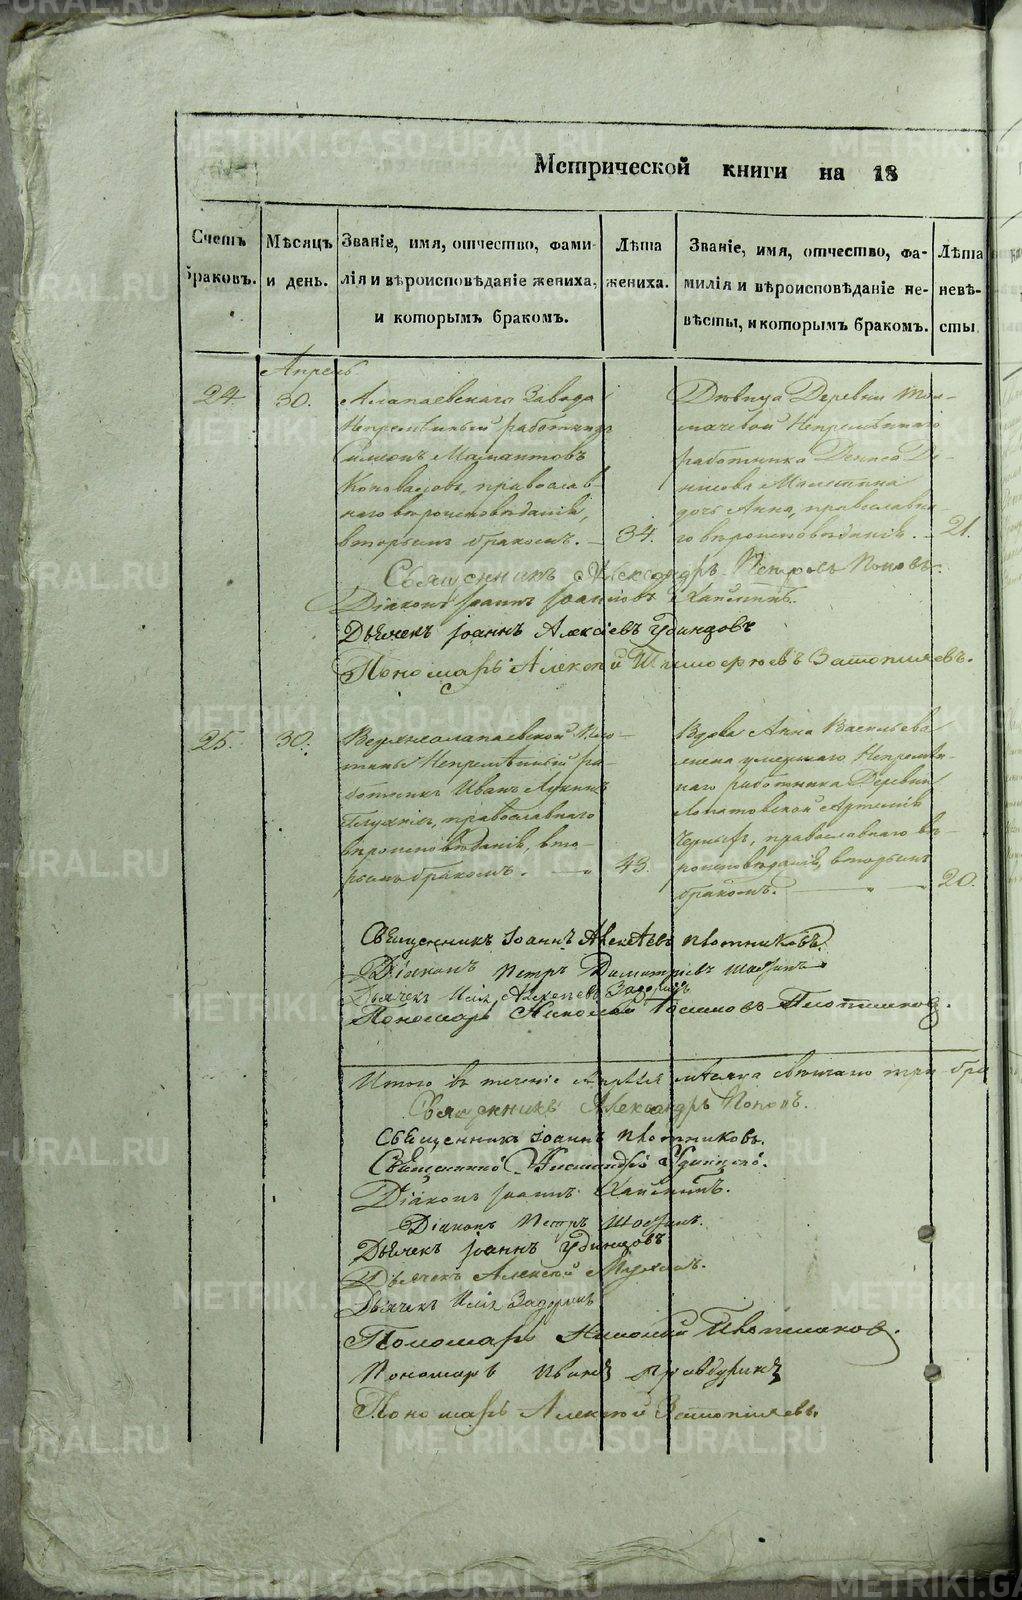 Метрической книги на 18
Счетъ браковъ.
Мѣсяцъ и день.
Званіе, имя, отчество, фами-
лія и вѣроисповѣданіе жениха,
и которымъ бракомъ.
Лѣта
жениха.
Званіе, имя, отчество, фа-
милія и вѣроисповѣданіе не-
вѣсты, и которымъ бракомъ.
Лѣта
невѣ-
сты.
Апрель
24.
30.
Алапаевскаго Завода
Непремѣнный работникъ
Симеонъ Мамантовъ
Коноваловъ, православ-
наго вѣроисповѣданія,
вторымъ бракомъ.
34.
Дѣвица Деревни Тол-
мачевой Непремѣннаго
работника Дениса Де-
нисова
дочь Анна, православна-
го вѣроисповѣданія.
21.
Священникъ Александръ Петровъ Поповъ.
Діаконъ Іоаннъ Іоанновъ
Дьячекъ Іоаннъ Алексіевъ Удинцовъ
Пономарь Алексѣй Тимофеевъ Затопляевъ.
25.
30.
Верхнеалапаевской
Непремѣнный ра-
ботникъ Иванъ Лукинъ
православнаго
вѣроисповѣданія, вто-
рымъ бракомъ.
43.
Вдова Анна Васильева
жена умершаго Непремѣн-
наго работника Деревни
Артемія
Черныхъ, православнаго вѣ-
роисповѣданія, вторымъ
бракомъ.
20.
Священникъ Іоаннъ Алексѣевъ Плотниковъ.
Діаконъ Петръ Димитріевъ
Дьячекъ Илія Алексеевъ Задоринъ
Пономарь Николай Плотниковъ.
Итого въ теченіе Апрѣля месяца свѣнчано три бра
Священникъ Александръ Поповъ.
Священникъ Іоаннъ Плотниковъ.
Священникъ Удинцовъ.
Діаконъ Іоаннъ
Діаконъ Петръ
Дьячекъ Іоаннъ Удинцовъ
Дьячекъ Алексѣй
Дьячекъ Илія Задоринъ
Пономарь Николай Плотниковъ.
Пономарь Иванъ
Пономарь Алексѣй Затопляевъ.
METRIKI.GASO-URAL.RU